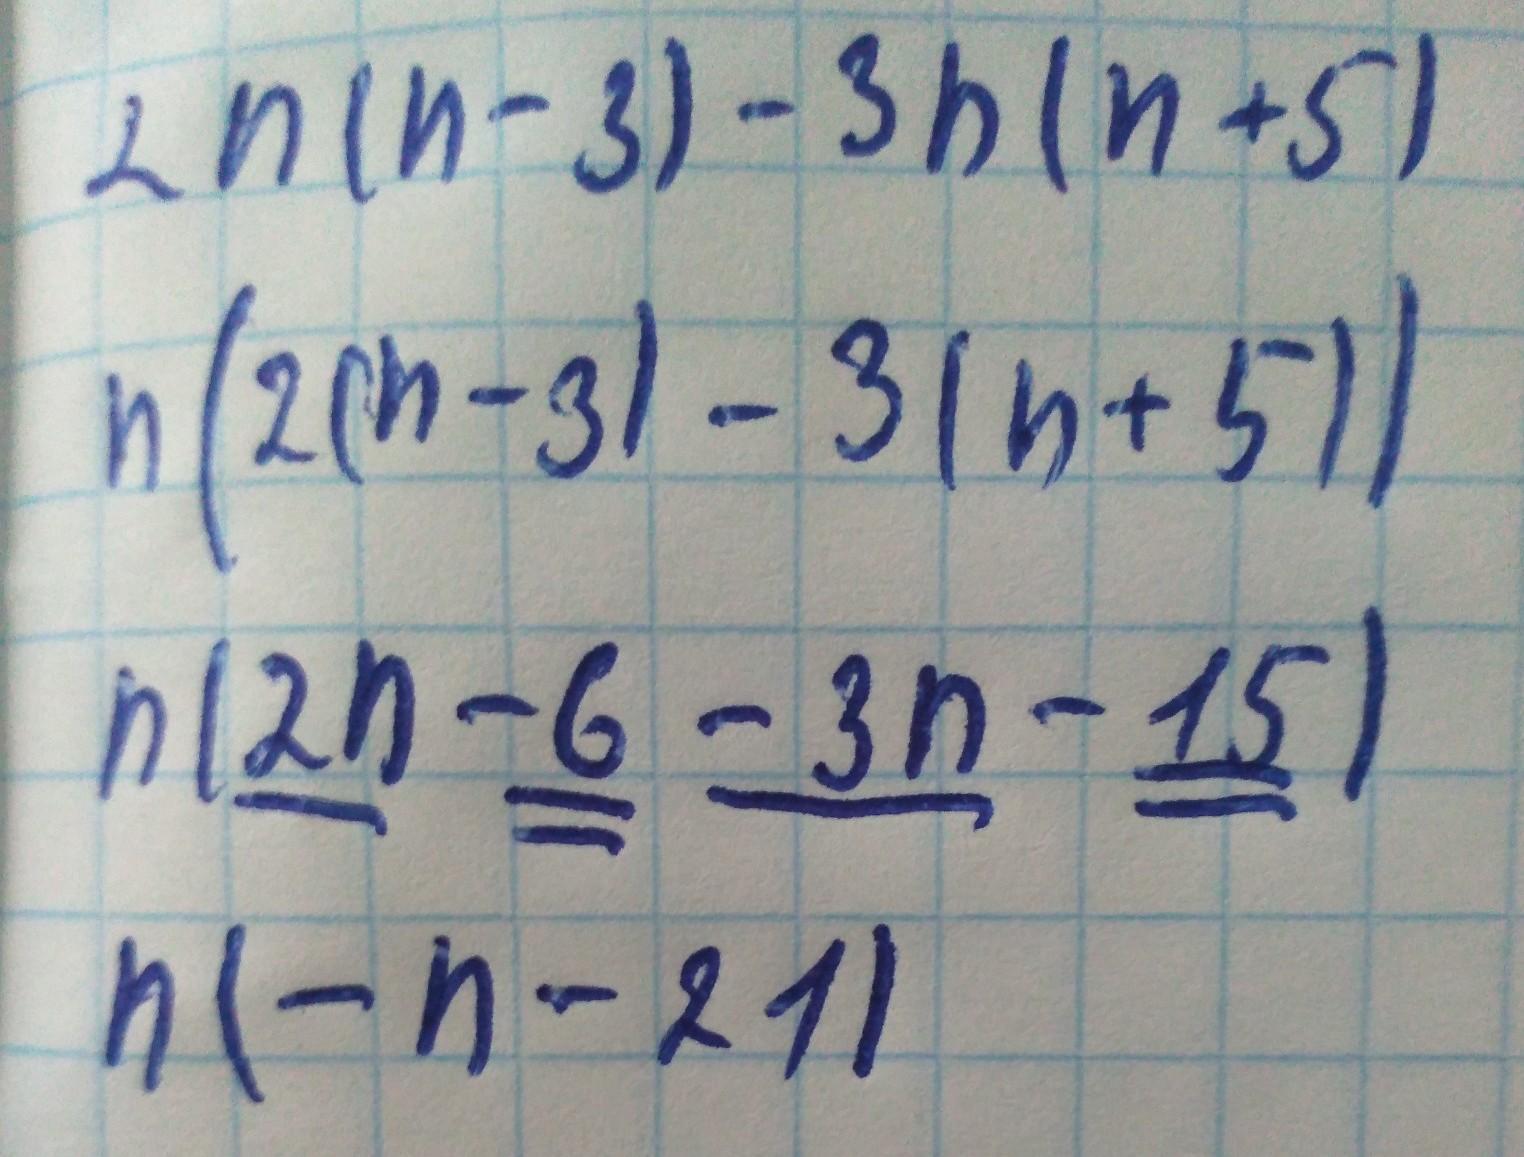 2n(n-3)-3n(n+5)
n(2(n-3)-3(n+5))
n(2n-6-3n-15)
n(-n-21)